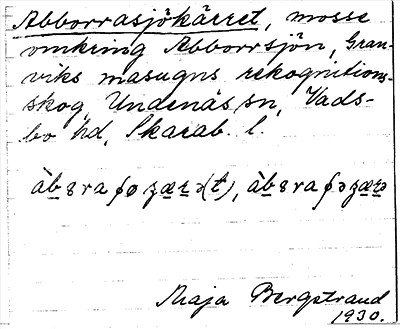 Abborrasjökärret, mosse
omkring Abborrsjön, Gran-
viks masugns rekognitions-
skog, Undenäs sn, Vads-
bo hd, Skarab. l.
àbɜraʃøʒærə(t), àbɜraʃəʒærə
Maja Bergstrand
1930.